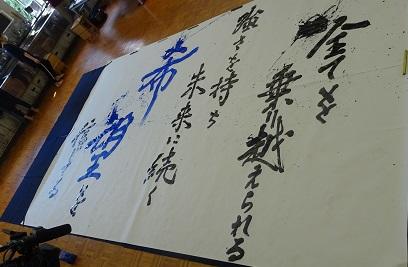 全てを
乗り越えられる
強さを持ち
未来に続く
希望と